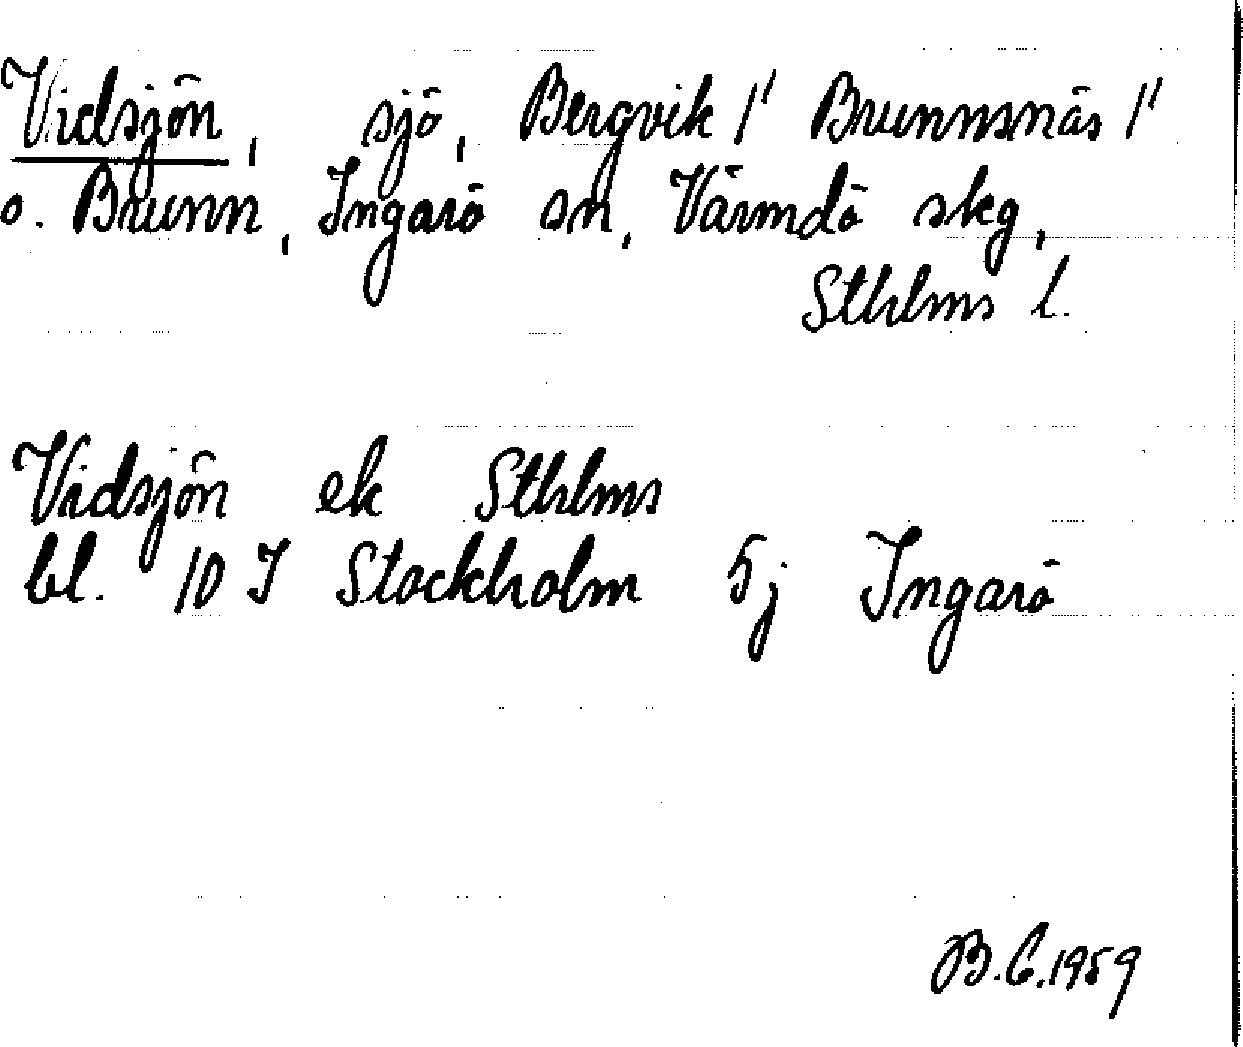 Vidsjön, sjö, Bergvik 1' Brunnsnäs 1'
o. Brunn, Ingarö sn, Värmdö skg,
Sthlms l.
Vidsjön ek Sthlms
bl. 10 I Stockholm 5j Ingarö
B.C.1959